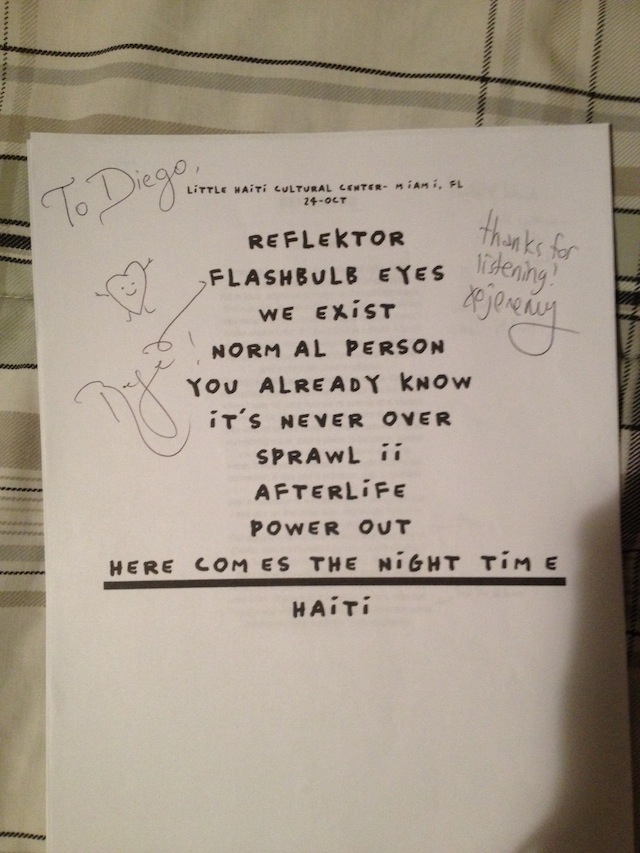 To Diego,
LiTTLE HAiTi CULTURAL CENTER- MiAMi, FL
24-OCT
REFLEKTOR
thanks for
listening!
FLASHBULB EYES
jeremy
WE EXiST
NORMAL PERSON
YOU ALREADY KNOW
iT'S NEVER OVER
SPRAWL ii
AFTERLiFE
POWER OUT
HERE COMES THE NiGHT TiME
HAiTi